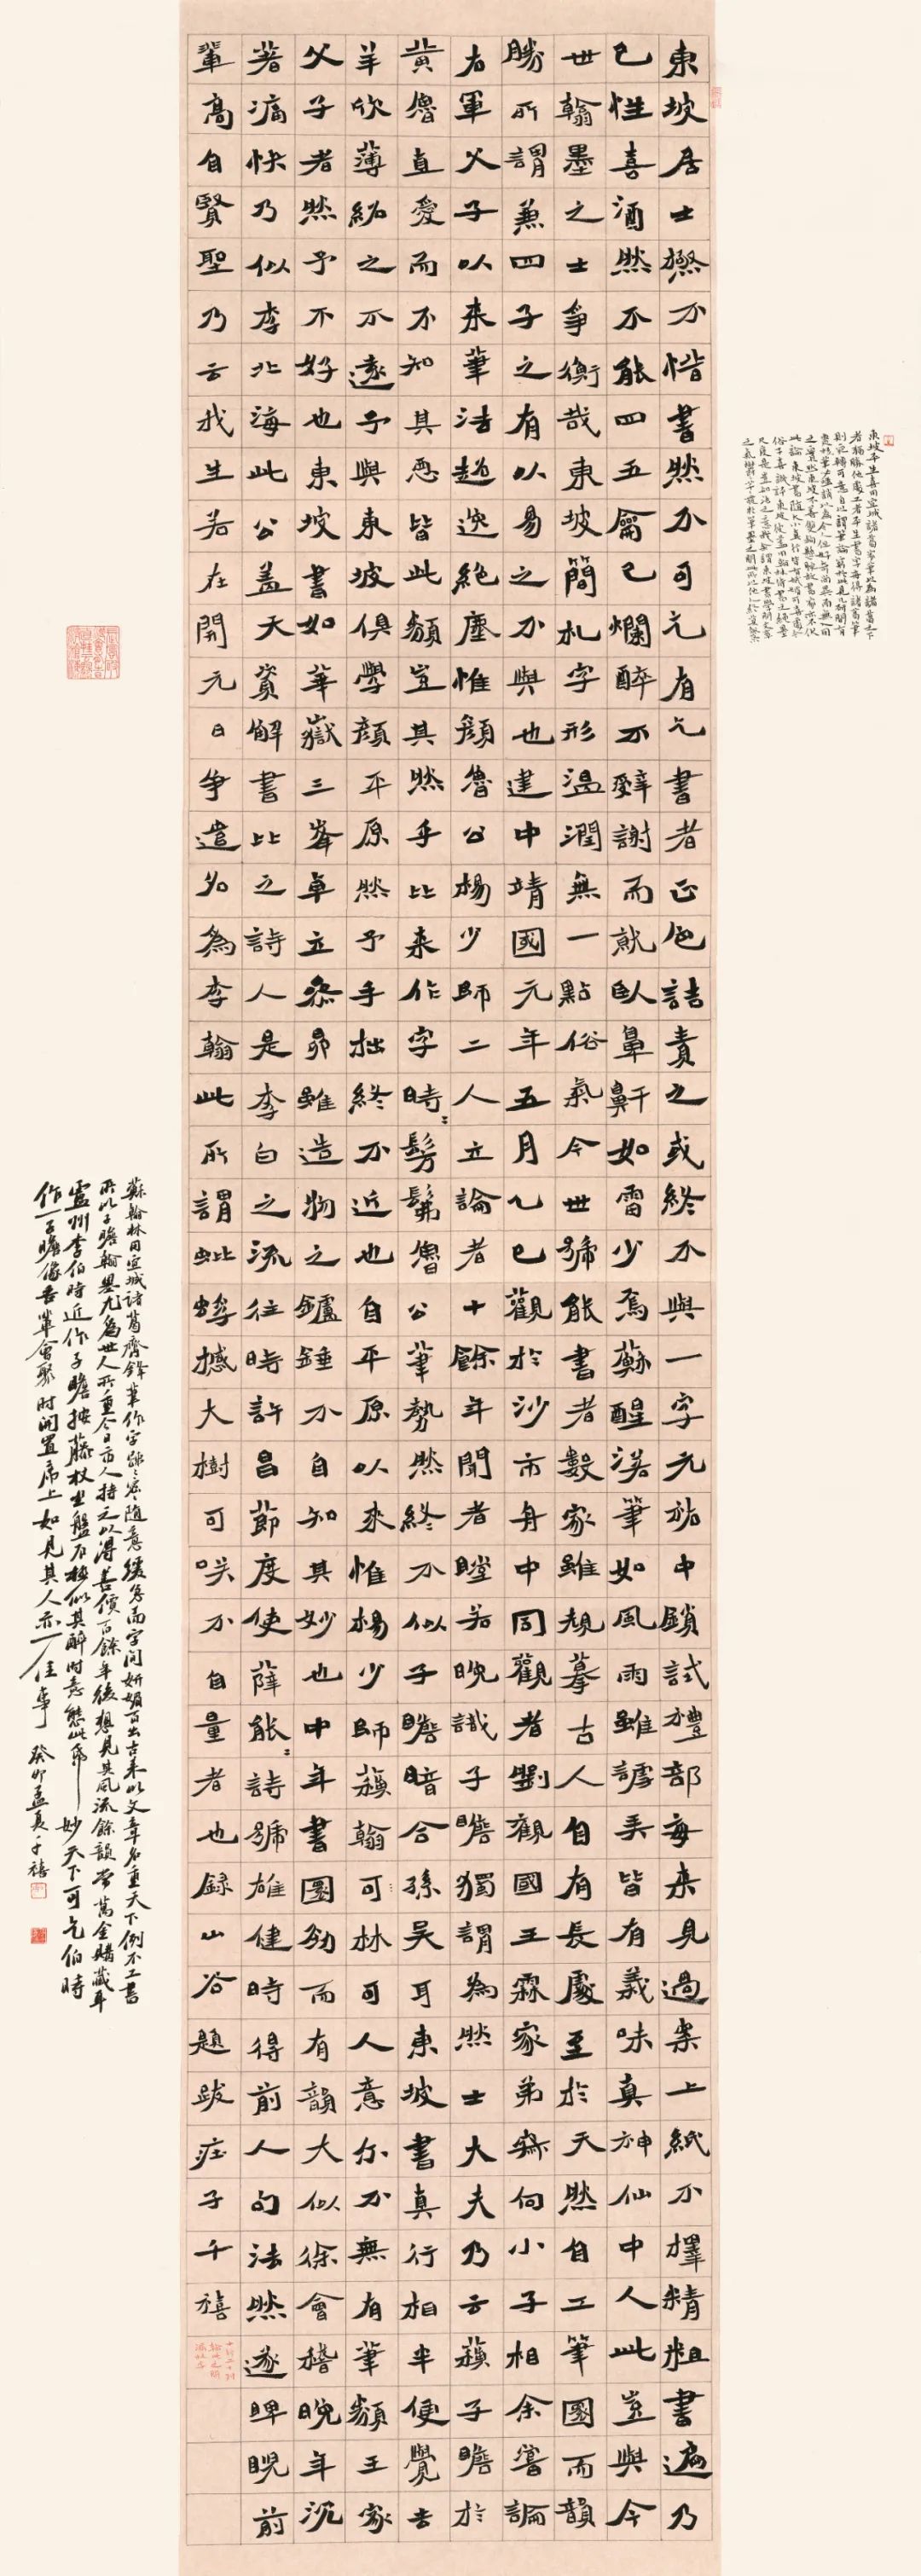 東坡平生喜用宣城諸葛家筆以為諸葛之下
者猶勝他處工者平生書字每得諸葛筆
則宛轉可意自以謂筆論窮於此見几研間有
棗核筆必嗤誚以為今人但好奇尚異而無入用
之實然東坡不善雙鉤懸腕故書家亦不伏
此論東坡書隨大小真行皆有嫵媚可喜處今
俗子喜譏評東坡彼蓋用翰林侍書之繩墨
尺度是豈知法之意哉余謂東坡書學問文章
之氣鬱鬱芊芊發於筆墨之間此所以他人終莫能
東坡居士㯳不惜書然不可乞有乞書者正色詰責之或終不與一字元祐中鎖試禮部每来見過案上紙不擇精粗書遍乃
已性喜酒然不能四五龠已爛醉不辭謝而就臥鼻鼾如雷少焉蘇醒落筆如風雨雖謔弄皆有義味真神仙中人此豈與今
世翰墨之士爭衡哉東坡簡札字形溫潤無一點俗氣今世號能書者數家雖規摹古人自有長處至於天然自工筆圓而韻
勝所謂兼四子之有以易之不與也建中靖國元年五月乙巳觀於沙市舟中同觀者劉觀國王霖家弟叔向小子相余嘗論
右軍父子以来筆法超逸絕塵惟顏魯公楊少師二人立論者十餘年聞者瞠若晚識子瞻獨謂為然士大夫乃云蘇子瞻於
黃魯直愛而不知其惡皆此類豈其然乎比来作字時〻髣髴魯公筆勢然終不似子瞻暗合孫吳耳東坡書真行相半便覺去
羊欣薄紹之不遠予與東坡俱學顏平原然予手拙終不近也自平原以來惟楊少師蘇翰可林可人意尔不無有筆類王家
父子者然予不好也東坡書如華嶽三峯卓立參昴雖造物之鑪錘不自知其妙也中年書圓勁而有韻大似徐會稽晚年沉
著痛快乃似李北海此公蓋天資解書比之詩人是李白之流往時許昌節度使薛能〻詩號雄健時得前人句法然遂睥睨前
輩高自賢聖乃云我生若在開元日爭遣名為李翰此所謂蚍蜉撼大樹可咲不自量者也錄山谷題跋莊子千禧
蘇翰林用宣城諸葛齊鋒筆作字疏〻密〻隨意緩急而字間妍媚百出古来以文章名重天下例不工書
所以子瞻翰墨尤為世人所重今日市人持之以得善價百餘年後想見其風流餘韻當萬金購藏耳
盧州李伯時近作子瞻按藤杖坐盤石極似其醉時意態此紙一妙天下可乞伯時
作一子瞻像吾輩會聚時開置席上如見其人亦一佳事 癸卯孟夏千禧